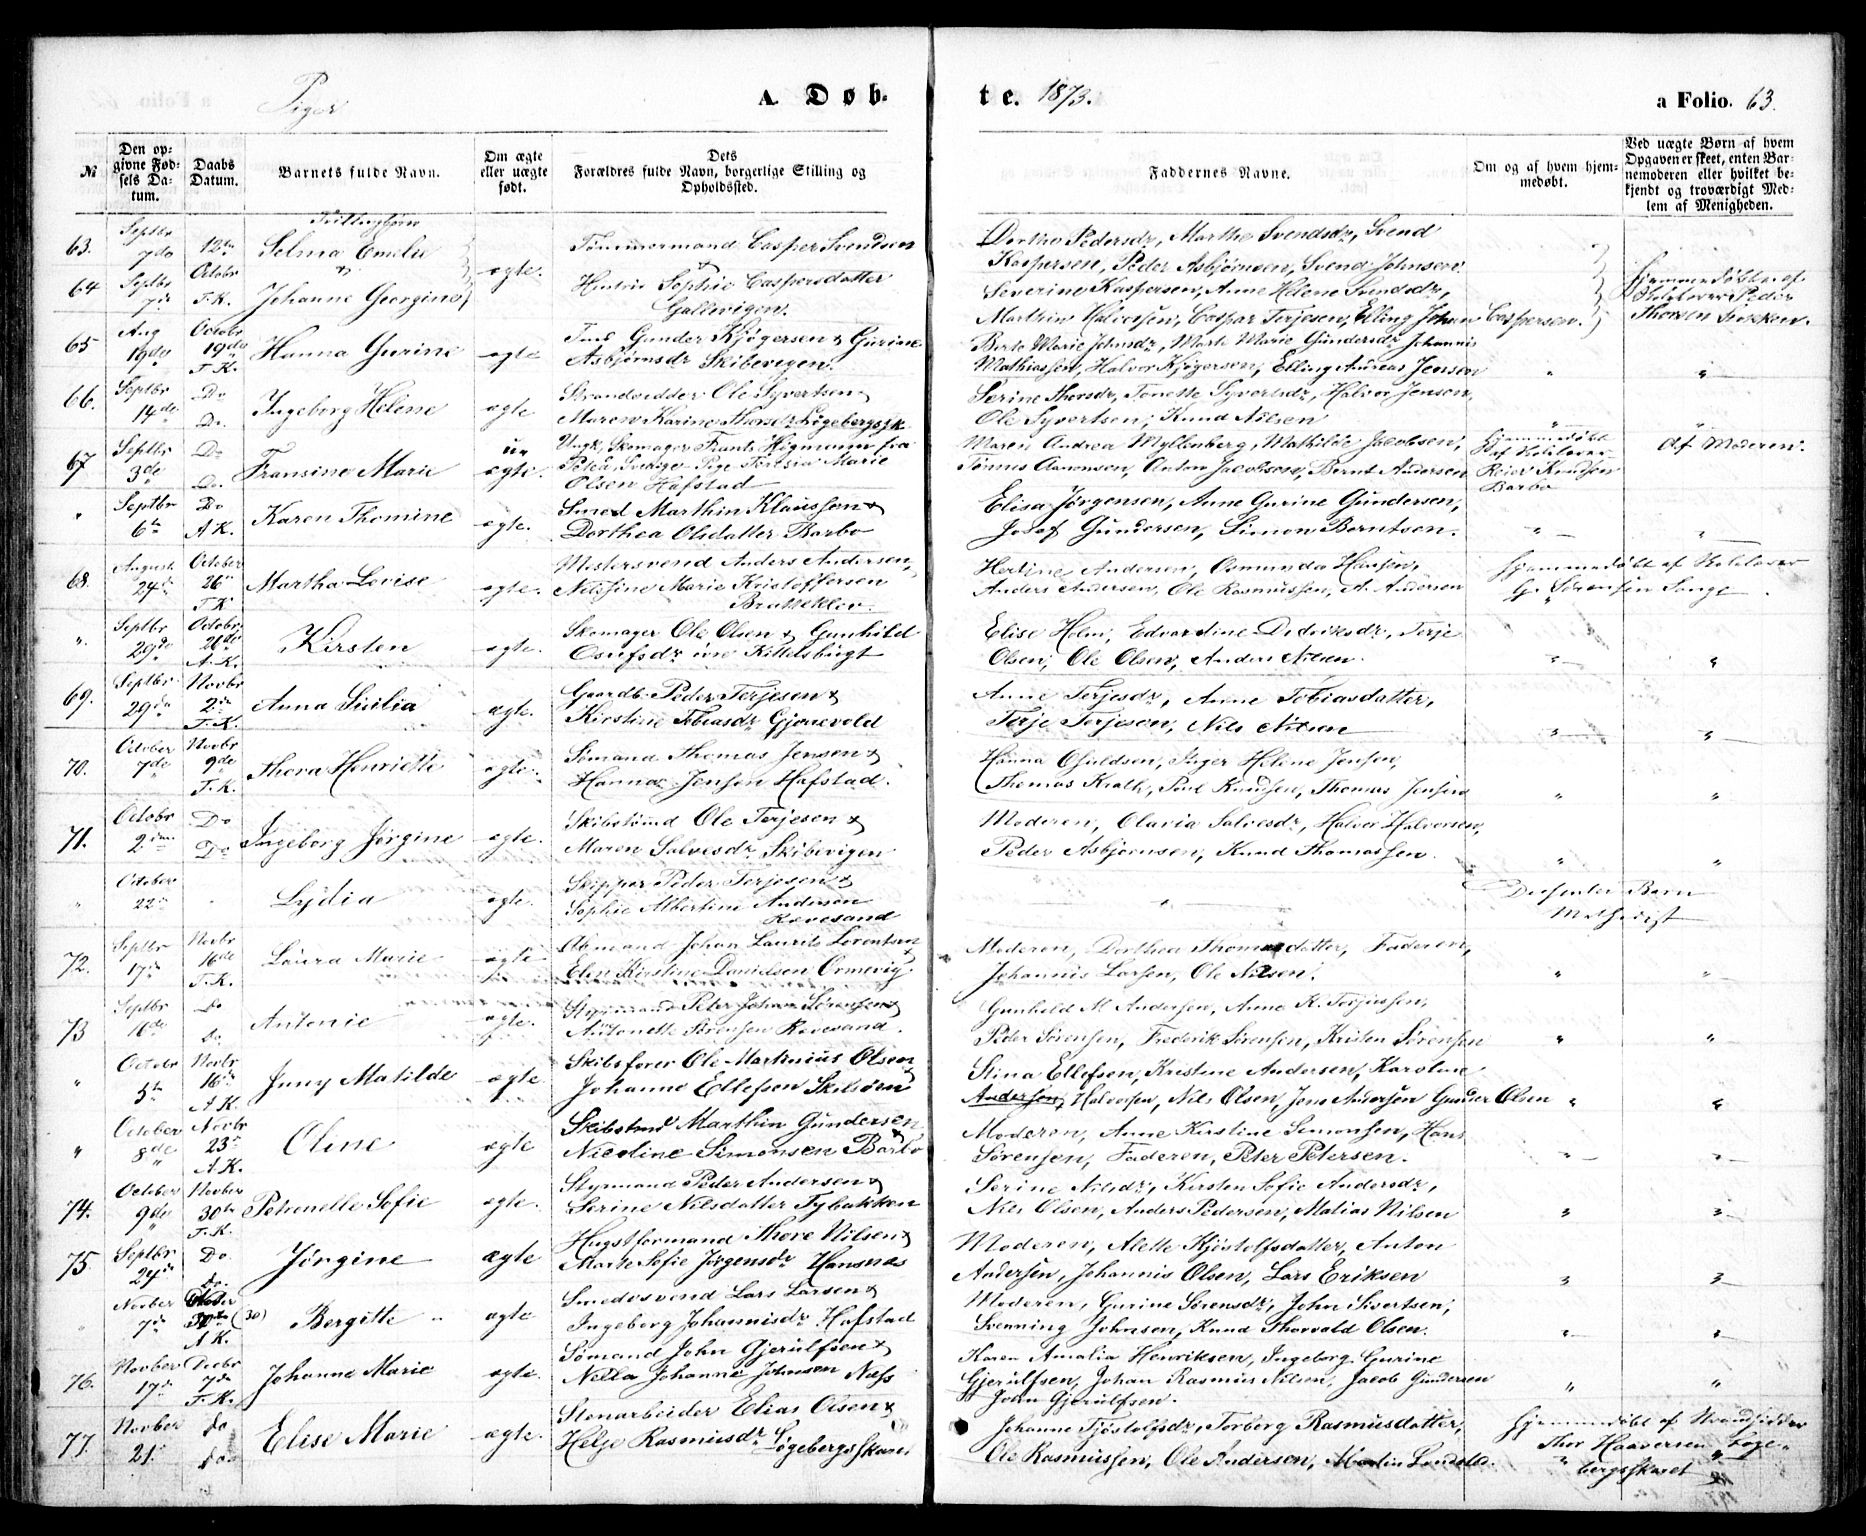 Piger A. Døb-
te. 1873. a Folio. 63.
№ Den opgivne Fødsels Datum. Daabs Datum. Barnets fulde Navn. Om ægte eller uægte født. Dets Forældres fulde Navn, borgerlige Stilling og Opholdssted. Faddernes Navne. Om og af hvem hjemmedøbt. Ved uægte Børn af hvem Opgaven er skeet, enten Barnemoderen eller hvilket bekjendt og troværdigt Medlem af Menigheden.
Tvillingbørn
63. Septbr 7de 12te Selma Emilie Tømmermand Casper Svendsen Dorthe Pedersdr, Marthe Svendsdr, Svend
& ægte. & Kaspersen, Peder Asbjørnsen, Svend Johnsen.
64 Septbr 7de Octobr F.K. Johanne Georgine Hustru Sophie Caspersdatter Severine Kaspersen, Anne Helene Svendsdr, Hjemmedøbt af
Gallevigen. Martin Halvorsen, Caspar Terjesen, Elling Johan Caspersen. Peder Thorsen Stokken.
65 Aug 19de Octobr 19de F.K. Hanna Gurine ægte Gunder Kjøgersen & Gurine Berte Marie Johnsdr, Marte Marie Gundersdr Johannis
Asbjørnsdr Skibevigen. Mathiassen, Halvor Kjøgersen, Elling Andreas Jensen " "
66. Septbr 14de Do Do. Ingeborg Helene ægte Strandsidder Ole Syvertsen & Serine Thorsdr, Tonette Syversdr, Halvor Jensen,
Maren Karine Thorsdr Løgebergsk. Ole Syvertsen, Knud Nilsen " "
67 Septbr 3de Do Do. Fransine Marie uægte. Ungk. Skomager Frants Higmann fra Maren Andrea Myllenberg, Mathilde Jacobsen, Hjemmedøbt Af Moderen.
Sverige Pige Marie Tønnes Aanonsen, Anton Jacobsen, Bernt Andersen af Kirkelærer
Olsen Hafstad Reier Knudsen
Barbo
" Septbr 6te Do A.K. Karen Thomine ægte. Smed Marthin Klaussen & Elisa Jørgensen, Anne Gurine Gundersen,
Dorthea Olsdatter Barbo Josef Gundersen, Simon Berntsen. " "
68. August 24de October 26de F.K. Martha Levise ægte. Mestersvend Anders Andersen, Hertine Andersen, Osmunda Hansen, Hjemmedøbt af
Nilsine Marie Kristoffersen Anders Andersen, Ole Rasmussen, A. Andersen G. Sørensen Songe.
Bratteklev.
". Septbr 29de Octobr 26de A.K. Kirsten ægte. Skomager Ole Olsen & Gunhild Elise Holm, Edvardine Dideriksdr, Terje
Osufsdr øvre Kittelsbugt Olsen, Ole Olsen, Anders Nilsen. " "
69. Septbr 29de Novbr 2de F.K. Anna Sicilia ægte. Gaardb. Peder Terjesen & Anne Terjesdr, Anne Tobiasdatter,
Kirstine Tobiasdr Gjerrevold Terje Terjesen, Nils Nilsen " "
70. October 7de Novbr 9de F.K. Thora Henriette ægte. Sømand Thomas Jensen & Hanna Osuldsen, Inger Helene Jensen,
Hanna Jensen Hafstad. Thomas Krath, Poul Knudsen, Thomas Jensen " "
71. Octobr 2den Do Do Ingeborg Jørgine ægte. Skibstømd Ole Terjesen & Moderen, Olavia Salvesdr, Halvor Halvorsen,
Maren Salvesdr Skibevigen Peder Asbjørnsen, Knud Thomassen. " "
" October 22de Lydia ægte. Skipper Peder Terjesen & " Dissenter Barn
Sophie Albertine Andersen Methodist
Revesand
72. Septbr 17de Novbr 16de F.K. Laura Marie ægte Sømand Johan Laurits Lorentsen Moderen, Dorthea Thomasdatter, Faderen,
Elen Kirstine Danielsen Ormevig. Johannis Larsen, Ole Nilsen. " "
73 Septbr 16de Do do. Antonie ægte. Styrmand Peter Johan Sørensen & Gunhild M Andersen, Anne K. Terjussen,
Antonette Sørensen Revesand. Peder Sørensen, Frederik Sørensen, Kristen Sørensen " "
" Octobr 5te Novbr 16de A.K. Jnny Matilde ægte Skibsfører Ole Martinius Olsen Stina Ellefsen, Kristine Andersen, Karoline
Johanne Ellefsen Skilsøen Andersen, Halvorsen, Nils Olsen, Jens Andersen Gunder Olsen " "
" October 8de Novbr 23de A.K. Oline ægte Skibstmd Marthin Gundersen Moderen, Anne Kirstine Simonsen, Hans
& Nicoline Simonsen Barbo Sørensen, Faderen, Peter Petersen. " "
74. October 9de Novber 30te F.K. Petronelle Sofie ægte. Styrmand Peder Andersen & Serine Nilsdr, Kirsten Sofie Andersdr,
Serine Nilsdatter Tybakken Nils Olsen, Anders Pedersen, Matias Nilsen " "
75. Septbr 24de Do do. Jørgine ægte Thore Nilsen & Moderen, Alette Kjøstolfsdatter, Anton
Marte Sofie Jørgensdr Hansnæs Andersen, Johannis Olsen, Lars Eriksen " "
Novber 7de (30) A K. Bergitte ægte Smedesvend Lars Larsen & Moderen, Gurine Sørensdr, John Sivertsen,
Ingeborg Johannisdr Hafstad Svenning Johnsen, Knud Thorvald Olsen. " "
76. Novber 17de Decbr 7de F.K. Johanne Marie ægte. Sømand John Gjerulfsen & Karen Amalia Henriksen, Ingeborg Gurine
Nella Johanne Johnsen Næss Gjerulfsen, Johan Rasmus Nilsen, Jacob Gundersen " "
John Gjerulfsen.
77. Novber 21. do do. Elise Marie ægte. Stenarbeider Elias Olsen & Johanne Tjøstolfsdr, Torborg Rasmusdatter, Hjemmedøbt af Strandsidder
Helje Rasmusdr Løgebergsskaret Ole Rasmussen, Ole Andersen, Martin Thor Haaversen Løge-
bergsskaret